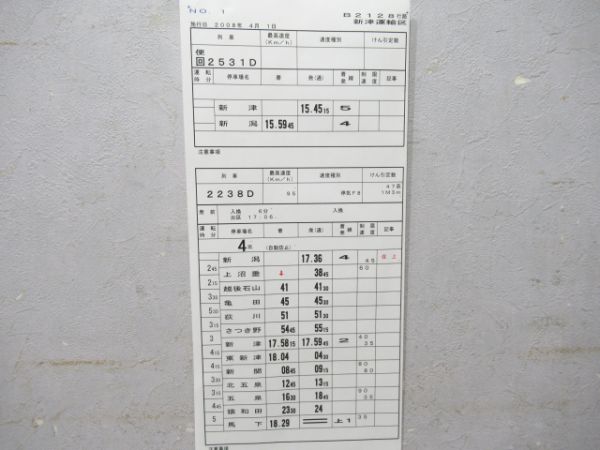 NO. 1
B2128行路
施行日 2008年 4月 1日 新津運輸区
列車 最高速度(Km/h) 速度種別 けん引定数
便
回2531D
運転時分 停車場名 着 発(通) 着発線 制限速度 記事
新津 15.45 15 5
新潟 15.59 45 4
注意事項
列車 最高速度(Km/h) 速度種別 けん引定数
2238D 95 停気F8 47系 1M3m
発前 入換 6分 入換
出区 17.06
運転時分 停車場名 着 発(通) 着発線 制限速度 記事
4両 (自動防止)
新潟 17.36 4 45
2 45 上沼垂 4 38 45 60
2 15 越後石山 41 41 30
3 30 亀田 45 45 30
5 30 荻川 51 51 30
3 15 さつき野 54 45 55 15
3 新津 17.58 15 17.59 45 2 40 35
東新津 18.04 04 30
新関 08 45 09 15
北五泉 12 45 13 15
3 15 五泉 16 30 18 45
4 45 猿和田 23 30 24
5 馬下 18.29 上1 35
注意事項